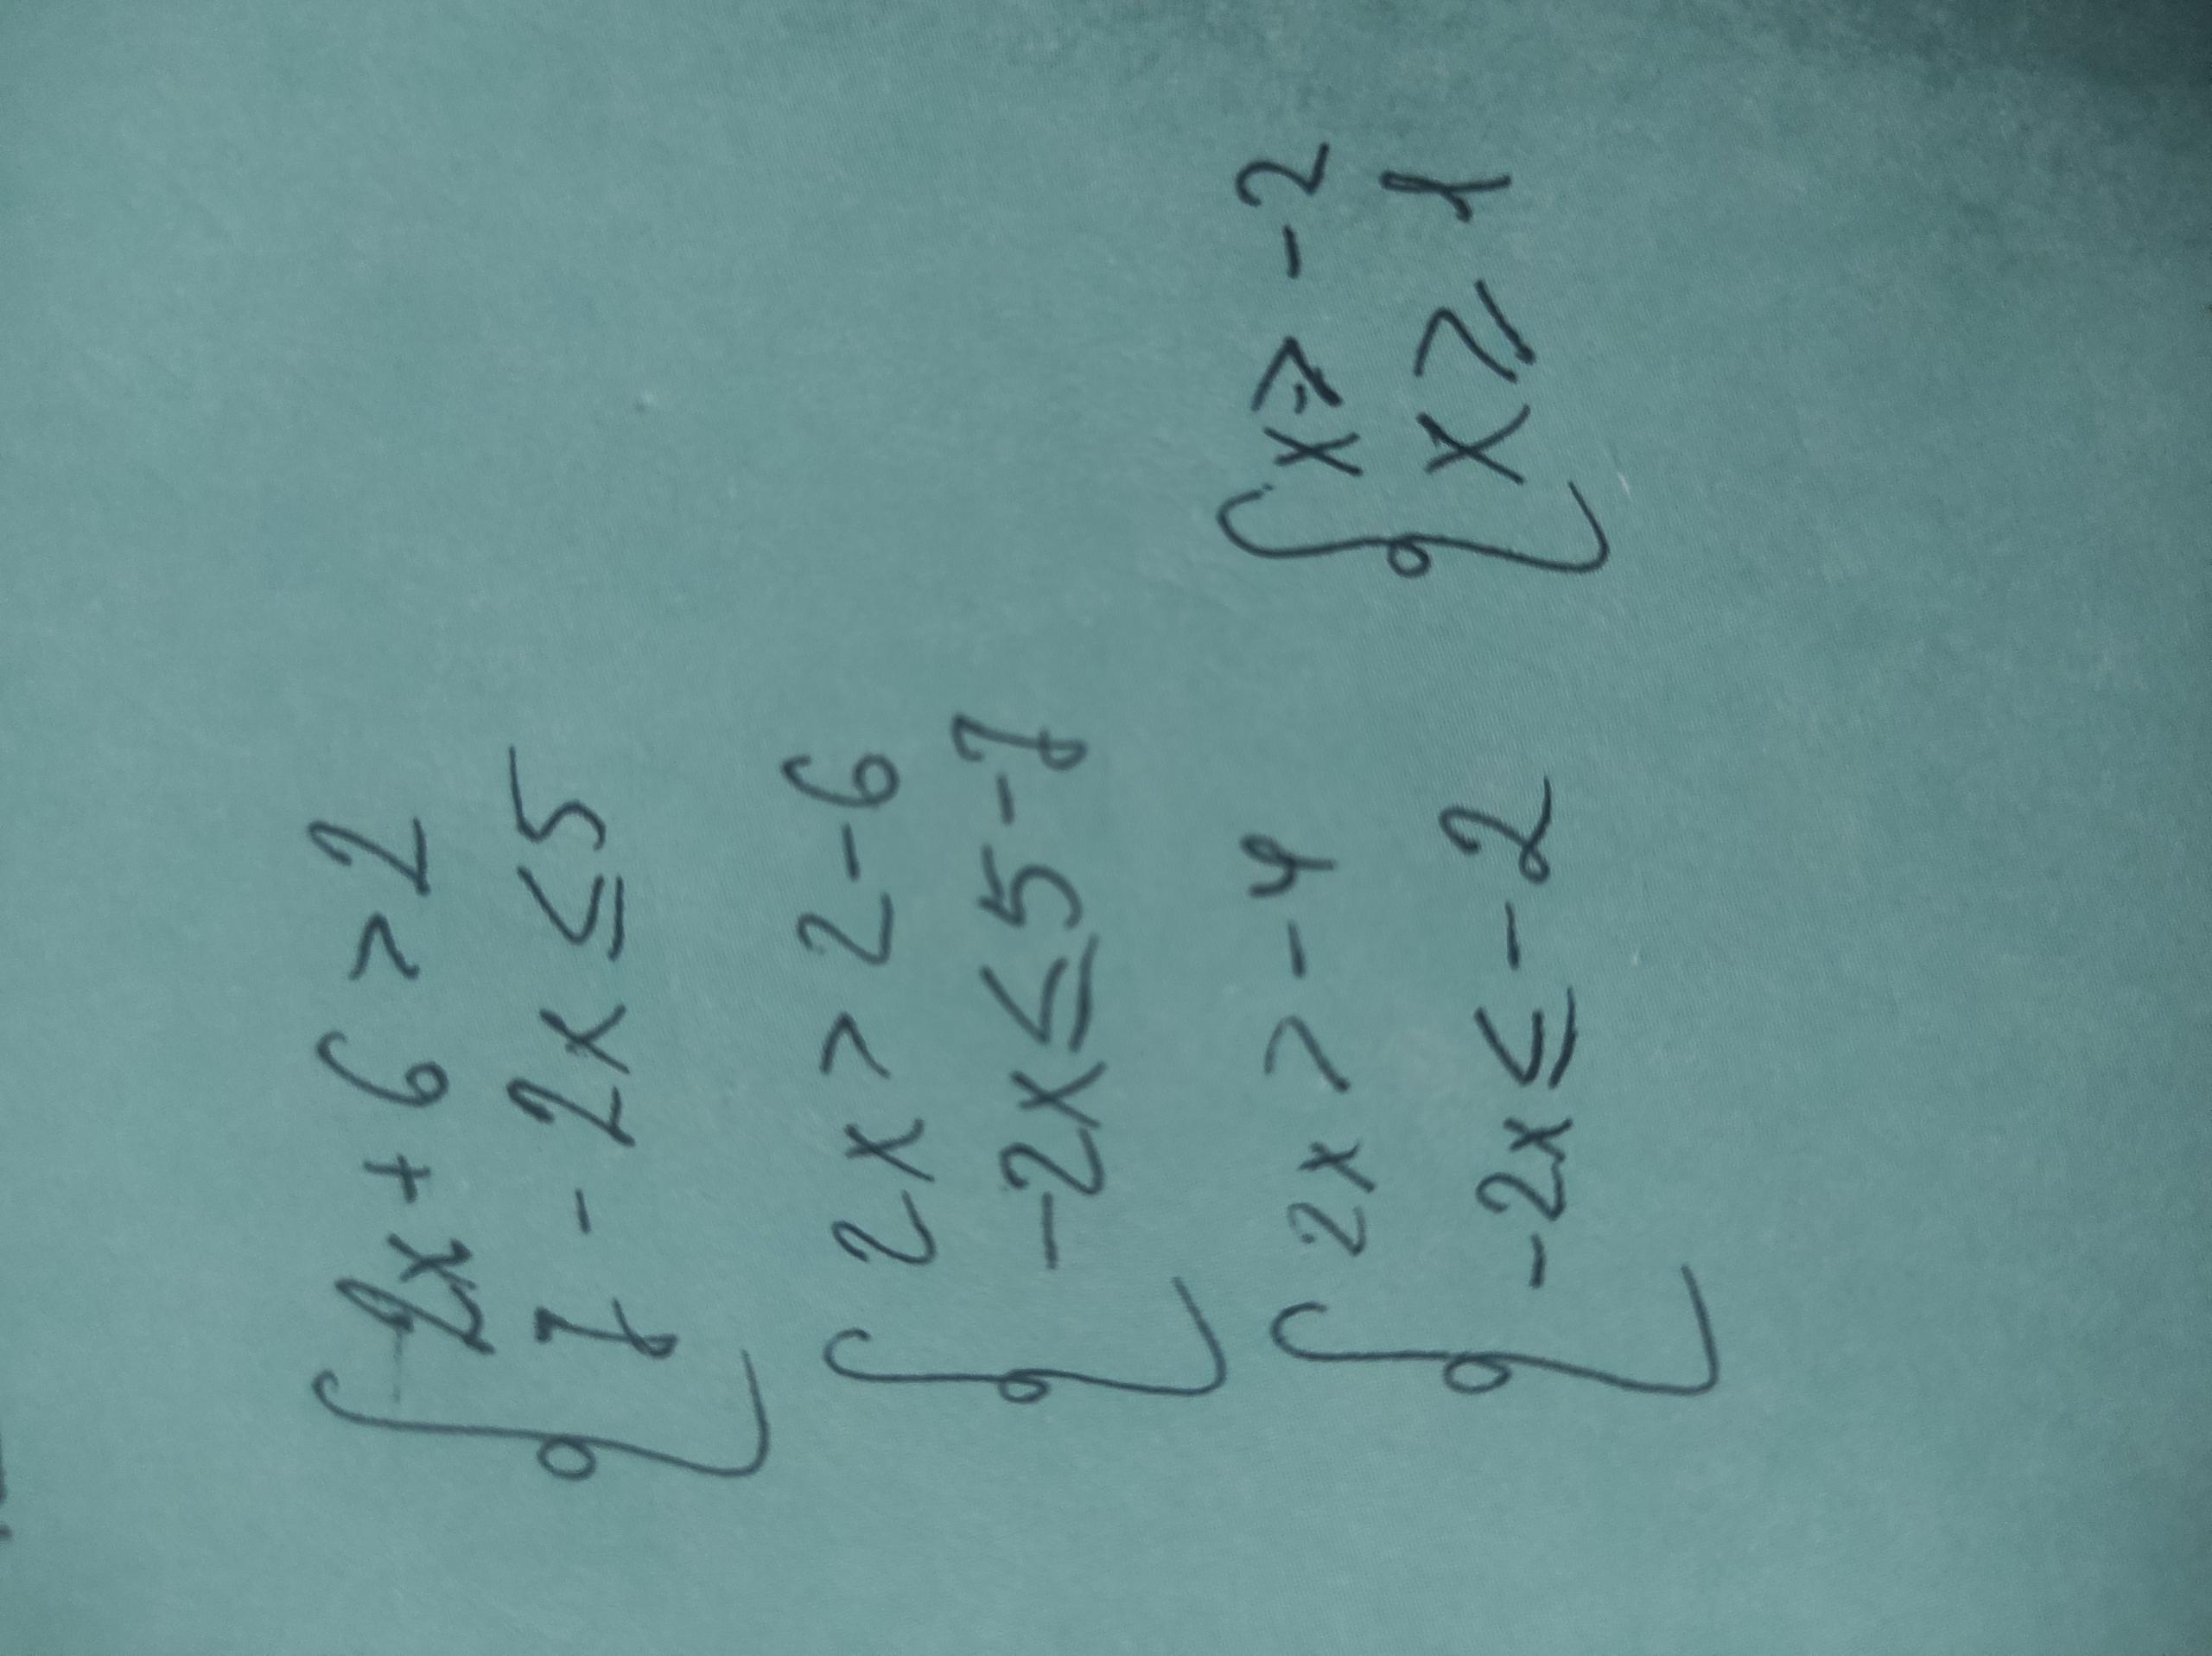 2x + 6 > 2
7 - 2x ≤ 5
2x > 2 - 6
-2x ≤ 5 - 7
2x > -4
-2x ≤ -2
x > -2
x ≥ 1